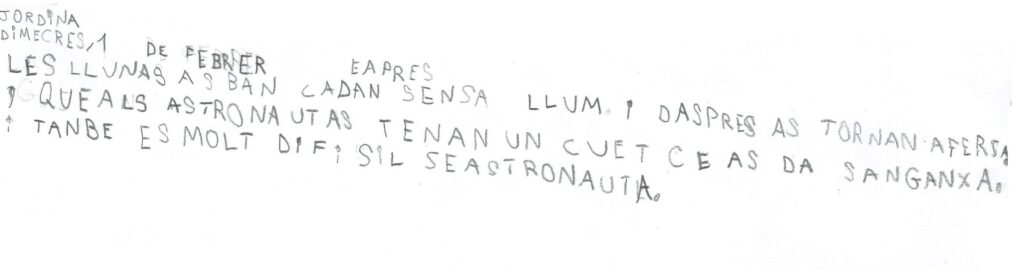 JORDINA
DIMECRES, 1 DE FEBRER EAPRES
LES LLUNAS AS BAN CADAN SENSA LLUM. I DASPRES AS TORNAN·AFERSA
I QUEALS ASTRONAUTAS TENAN UN CUET CE AS DA SANGANXA.
I TANBE ES MOLT DIFISIL SEASTRONAUTA.